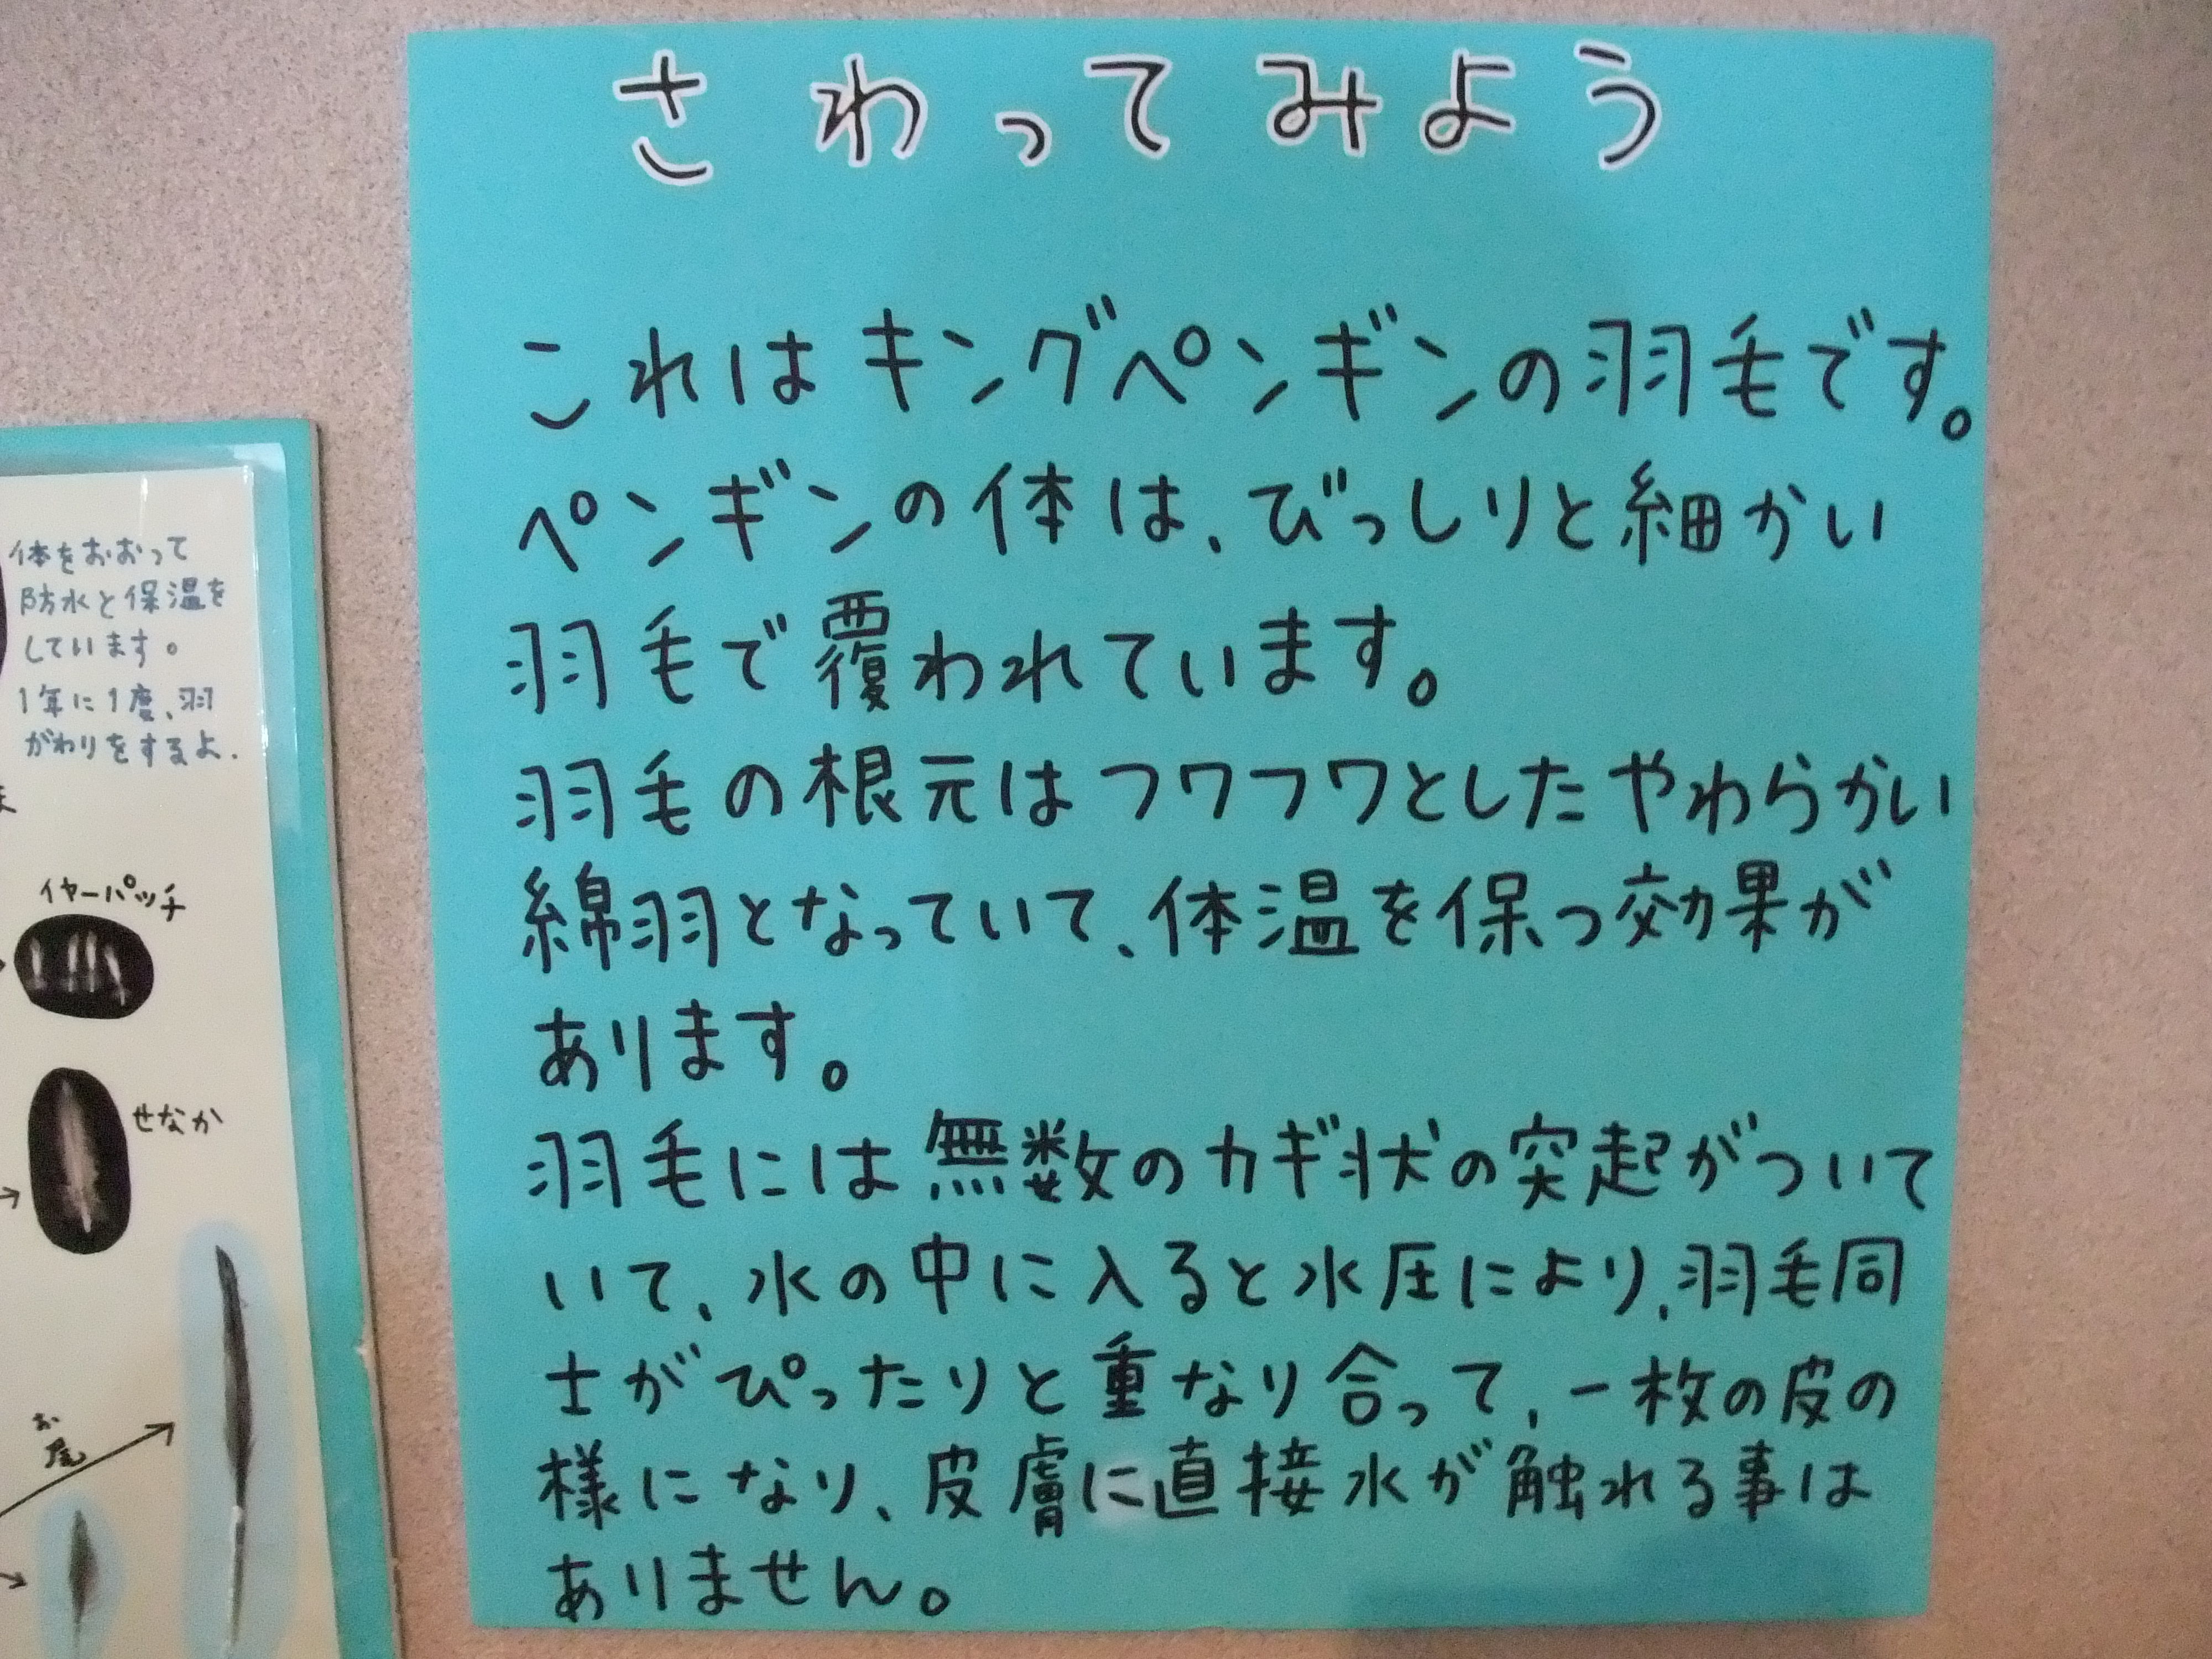 さわってみよう
これはキングペンギンの羽毛です。
ペンギンの体は、びっしりと細かい
羽毛で覆われています。
羽毛の根元はフワフワとしたやわらかい
綿羽となっていて、体温を保つ効果が
あります。
羽毛には無数のカギ状の突起がついて
いて、水の中に入ると水圧により、羽毛同
士がぴったりと重なり合って、一枚の皮の
様になり、皮膚に直接水が触れる事は
ありません。
体をおおって
防水と保温を
しています。
1年に1度、羽
がわりをするよ.
イヤーパッチ
せなか
お
尾